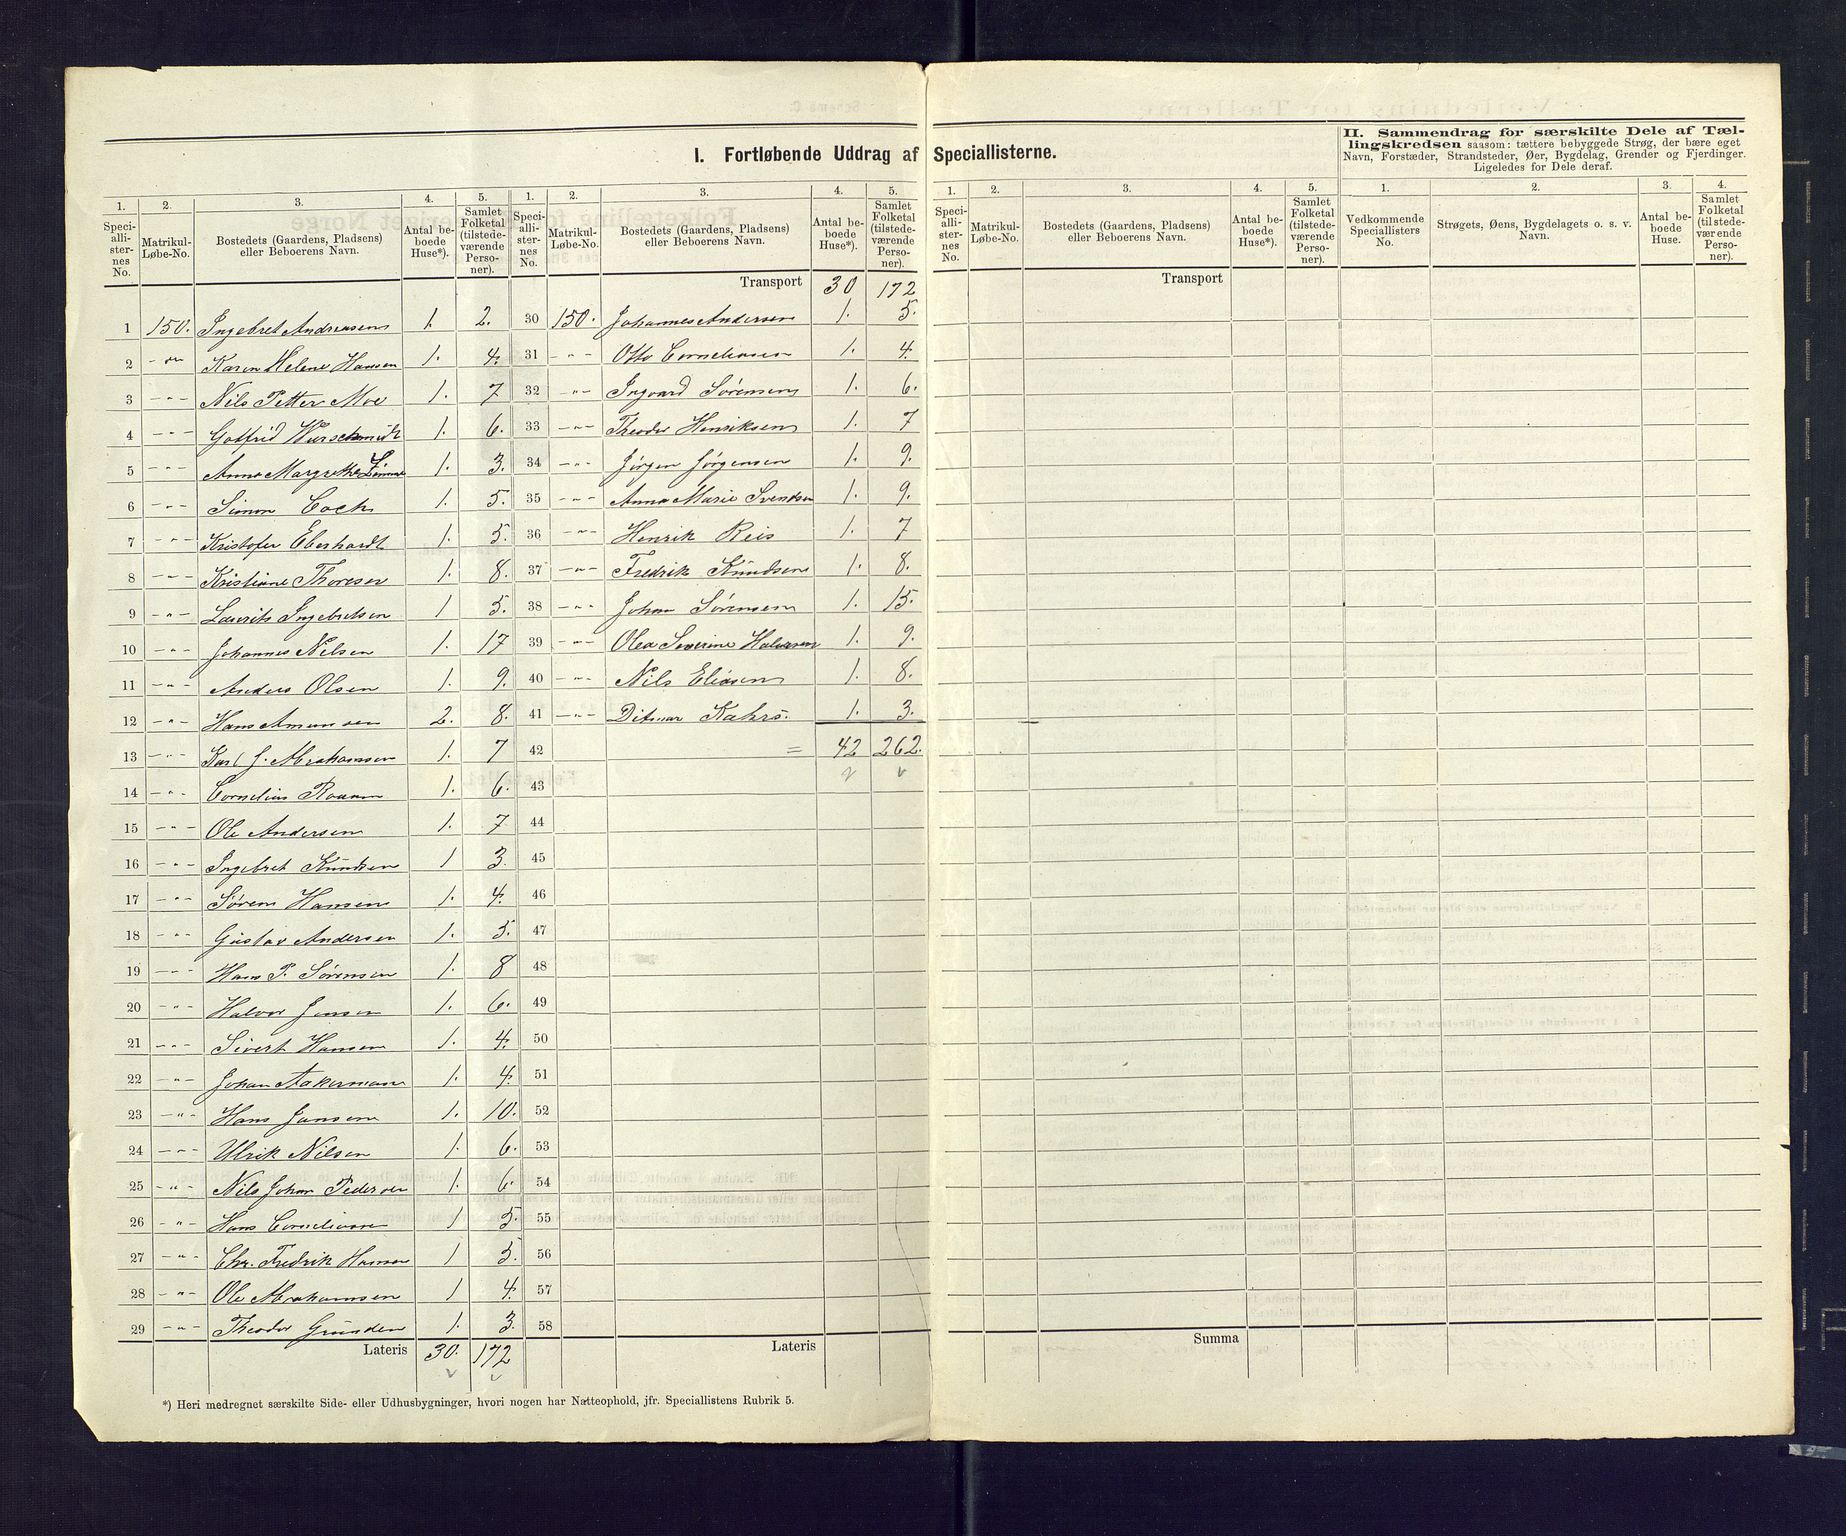 I. Fortløbende Uddrag af Speciallisterne.
II. Sammendrag for særskilte Dele af Tæl-
lingskredsen saasom: tættere bebyggede Strøg, der bære eget
Navn, Forstæder, Strandsteder, Øer, Bygdelag, Grender og Fjerdinger.
Ligeledes for Dele deraf.
1. 2. 3. 4. 5. 1. 2. 3. 4. 5. 1. 2. 3. 4. 5. 1. 2. 3. 4.
Speci-allister-nes No. Matrikul-Løbe-No. Bostedets (Gaardens, Pladsens) eller Beboerens Navn. Antal be-boede Huse*). Samlet Folketal (tilstede-værende Perso-ner).
Speci-allister-nes No. Matrikul-Løbe-No. Bostedets (Gaardens, Pladsens) eller Beboerens Navn. Antal be-boede Huse*). Samlet Folketal (tilstede-værende Perso-ner).
Speci-allister-nes No. Matrikul-Løbe-No. Bostedets (Gaardens, Pladsens) eller Beboerens Navn. Antal be-boede Huse*). Samlet Folketal (tilstede-værende Perso-ner).
Vedkommende Speciallisters No. Strøgets, Øens, Bygdelagets o. s. v. Navn. Antal be-boede Huse. Samlet Folketal (tilstede-værende Perso-ner).
1 150. Ingebret Andreasen 1. 2.
2 -"- Karen Helene Hansen 1. 4.
3 -"- Nils Petter Moe 1. 7
4 -"- Gotfrid Wurschmidt 1. 6.
5 -"- Anna Margrethe 1. 3.
6 -"- Simon Coch 1. 5.
7 -"- Kristofer Eberhardt 1. 5.
8 -"- Kristiane Thoresen 1. 8.
9 -"- Laurits Ingebretsen 1 5.
10 -"- Johannes Nilsen 1. 17
11 -"- Anders Olsen 1. 9.
12 -"- Hans Amundsen 2. 8.
13 -"- Karl J. Abrahamsen 1. 7
14 -"- Cornelius 1. 6.
15 -"- Ole Andersen 1. 7
16 -"- Ingebret Knudsen 1 3.
17 -"- Søren Hansen 1. 4.
18 -"- Gustav Andersen 1. 5.
19 -"- Hans P. Sørensen 1. 8
20 -"- Halvor Jensen 1. 6.
21 -"- Sivert Hansen 1. 4.
22 -"- Johan Aakermann 1. 4.
23 -"- Hans Jansen 1. 10.
24 -"- Ulrik Nilsen 1. 6.
25 -"- Nils Johan Pedersen 1. 6.
26 -"- Hans Corneliusen 1 5.
27 -"- Chr. Fredrik Hansen 1 5.
28 -"- Ole Abrahamsen 1 4.
29 -"- Theodor Grunden 1. 3.
Lateris 30. 172
Transport 30 172
30 150. Johannes Andersen 1. 5.
31 -"- Otto Corneliusen 1. 4.
32 -"- Ingvard Sørensen 1. 6.
33 -"- Theodor Henriksen 1. 7
34 -"- Jørgen Jørgensen 1. 9.
35 -"- Anna Marie Svendsen 1. 9.
36 -"- Henrik Reis 1. 7
37 -"- Fredrik Knudsen 1. 8.
38 -"- Johan Sørensen 1. 15.
39 -"- Olea Severine Halvorsen 1. 9.
40 -"- Nils Eliasen 1. 8.
41 -"- Ditmar Kahrs. 1. 3.
42 = 42 262.
43
44
45
46
47
48
49
50
51
52
53
54
55
56
57
58
Lateris
Transport
Summa
*) Heri medregnet særskilte Side- eller Udhusbygninger, hvori nogen har Natteophold, jfr. Speciallistens Rubrik 5.